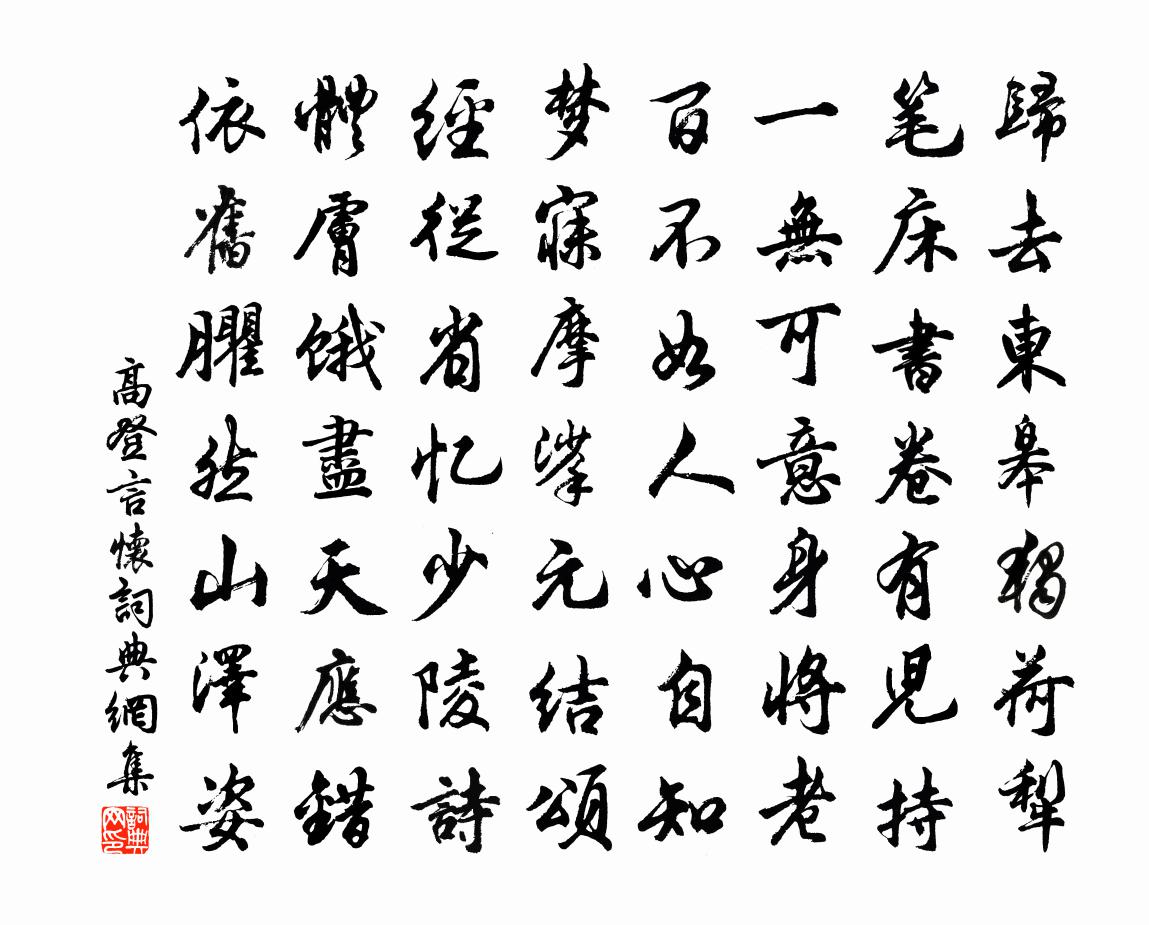 歸去東皋獨荷犁
笔床書卷有児持
一無可意身將老
百不如人心自知
梦寐摩挲元结頌
經從省忆少陵詩
體膚餓盡天應錯
依舊臞然山澤姿
高登言懷詞典網集
詞典網印